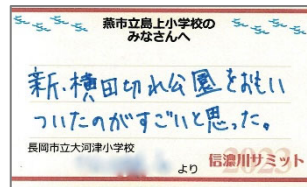 燕市立島上小学校の
みなさんへ
新・横田切れ公園をおもい
ついたのがすごいと思った。
長岡市立大河津小学校
より
信濃川サミット
2023